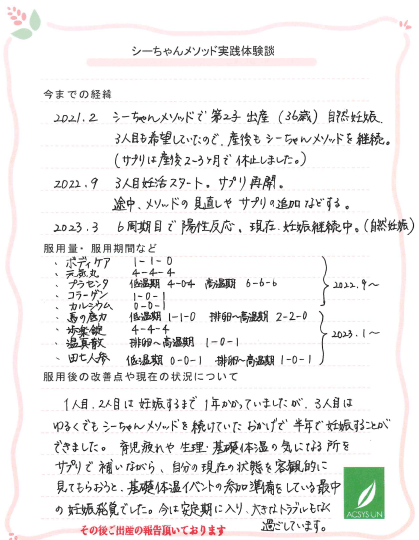 シーちゃんメソッド実践体験談
今までの経緯
2021.2 シーちゃんメソッドで第2子出産(36歳)自然妊娠
3人目も希望していたので、産後もシーちゃんメソッドを継続。
(サプリは産後2~3ヶ月で休止しました。)
2022.9 3人目妊活スタート。サプリ再開。
途中、メソッドの見直しやサプリの追加などする。
2023.3 6周期目で陽性反応、現在、妊娠継続中。(自然妊娠)
服用量・服用期間など
、ボディケア 1-1-0
、元気丸 4-4-4
、プラセンタ 低温期 4-0-4 高温期 6-6-6
、コラーゲン 1-0-1
、カルシウム 0-0-1
2022.9~
、馬の底力 低温期 1-1-0 排卵~高温期 2-2-0
、坊楽錠 4-4-4
、温真散 排卵~高温期 1-0-1
、田七人参 低温期 0-0-1 排卵~高温期 1-0-1
2023.1~
服用後の改善点や現在の状況について
1人目、2人目は妊娠するまで1年かかっていましたが、3人目は
ゆるくでもシーちゃんメソッドを続けていたおかげで半年で妊娠することが
できました。育児疲れや生理・基礎体温の気になる所を
サプリで補いながら、自分の現在の状態を客観的に
見てもらおうと、基礎体温イベントの参加準備をしている最中
の妊娠発覚でした。今は安定期に入り、大きなトラブルもなく
過ごしています。
ACSYS UN
その後ご出産の報告頂いております